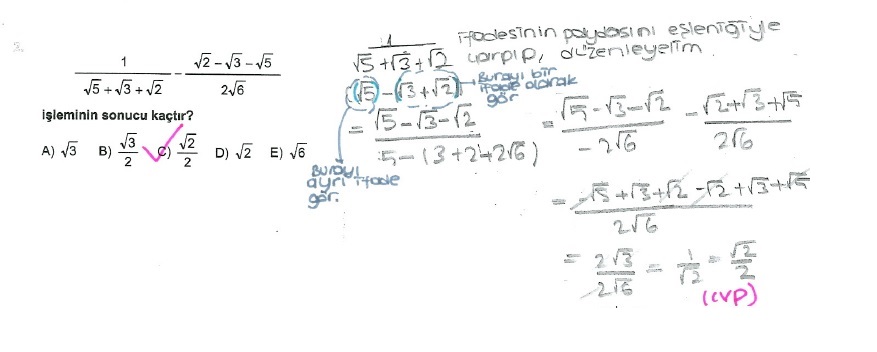 2.
1 / (√5 + √3 + √2) - (√2 - √3 - √5) / (2√6)
işleminin sonucu kaçtır?
A) √3 B) √3/2 C) √2/2 D) √2 E) √6
1 / (√5 + √3 + √2) ifadesinin paydasını eşleniğiyle
çarpıp, düzenleyelim.
(√5) - (√3 + √2)
Burayı bir
ifade olarak
gör
Burayı
ayrı ifade
gör.
= (√5 - √3 - √2) / (5 - (3 + 2 + 2√6)) = (√5 - √3 - √2) / (-2√6) - (√2 + √3 + √5) / (2√6)
= (-√5 + √3 + √2 - √2 + √3 + √5) / (2√6)
= 2√3 / 2√6 = 1/√2 = √2/2
(cvp)